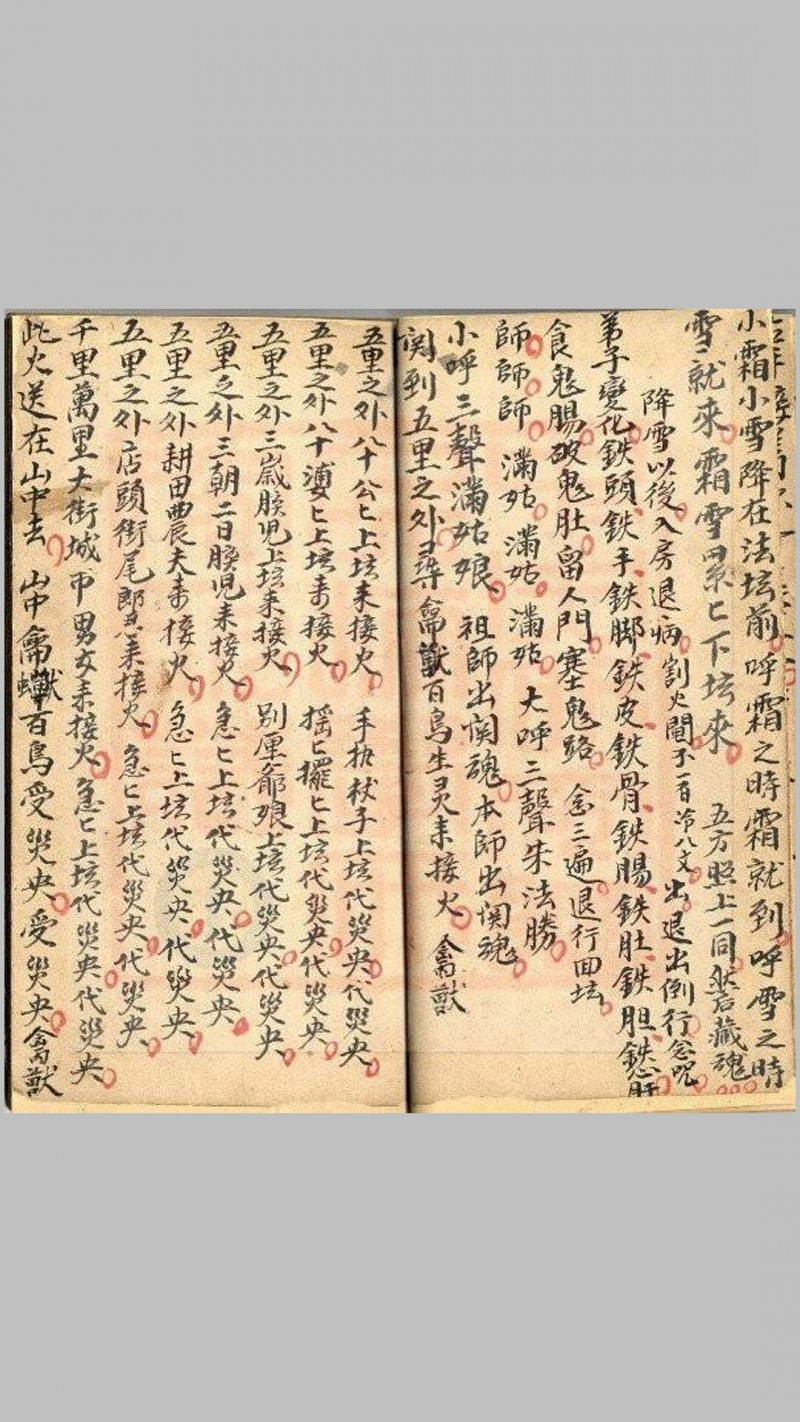 小霜小雪降在法坛前呼霜之時霜就到呼雪之時
雪〻就來霜雪累匕下坛來 五方照上一同 藏魂
降雪以後入房退病 割火 不一百 八文出退出倒行念咒
弟子變化鉄頭鉄手鉄脚鉄皮鉄骨鉄腸鉄肚鉄胆鉄肝
食鬼腸破鬼肚留人門塞鬼路 念三遍退行回坛
師師師 滿姑滿姑滿姑 大呼三聲朱法勝
小呼三聲滿姑娘 祖師出関魂本師出関魂
関到五里之外尋禽獸百鳥生灵耒接火 禽獸
五里之外八十公匕上坛耒接火 手执杖子上坛代災央代災央
五里之外八十婆匕上坛耒接火 摇匕擺匕上坛代災央代災央
五里之外三嵗孩児上坛耒接火 别厘爺娘上坛代災央代災央
五里之外三朝二日孩児耒接火 急匕上坛代災央代災央
五里之外耕田農夫耒接火 急匕上坛代災央代災央
五里之外店頭街尾郎 耒接火 急匕上坛代災央代災央
千里萬里大街城市男女耒接火 急匕上坛代災央代災央
此火送在山中去 山中禽獸百鳥受災央受災央禽獸